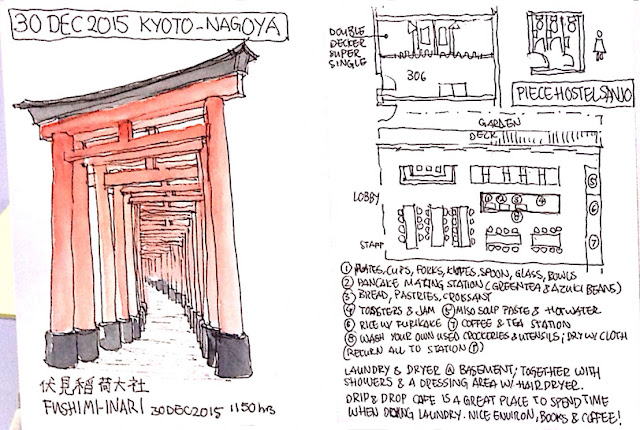 30 DEC 2015 KYOTO-NAGOYA
伏見稲荷大社
FUSHIMI-INARI 30DEC2015 1150 hrs
DOUBLE
DECKER
SUPER
SINGLE
306
PIECE HOSTEL SANJO
GARDEN
DECK
LOBBY
STAFF
① ② ③ ④
⑧
⑤
⑥
⑦
① PLATES, CUPS, FORKS, KNIFES, SPOON, GLASS, BOWLS
② PANCAKE MAKING STATION (GREENTEA & AZUKI BEANS)
③ BREAD, PASTRIES, CROISSANT
④ TOASTERS & JAM ⑤ MISO SOUP PASTE & HOTWATER
⑥ RICE W/ FURIKAKE ⑦ COFFEE & TEA STATION
⑧ WASH YOUR OWN USED CROCKERIES & UTENSILS; DRY W/ CLOTH
(RETURN ALL TO STATION ①)
LAUNDRY & DRYER @ BASEMENT; TOGETHER WITH
SHOWERS & A DRESSING AREA W/ HAIRDRYER.
DRIP & DROP CAFE IS A GREAT PLACE TO SPEND TIME
WHEN DOING LAUNDRY. NICE ENVIRON, BOOKS & COFFEE!